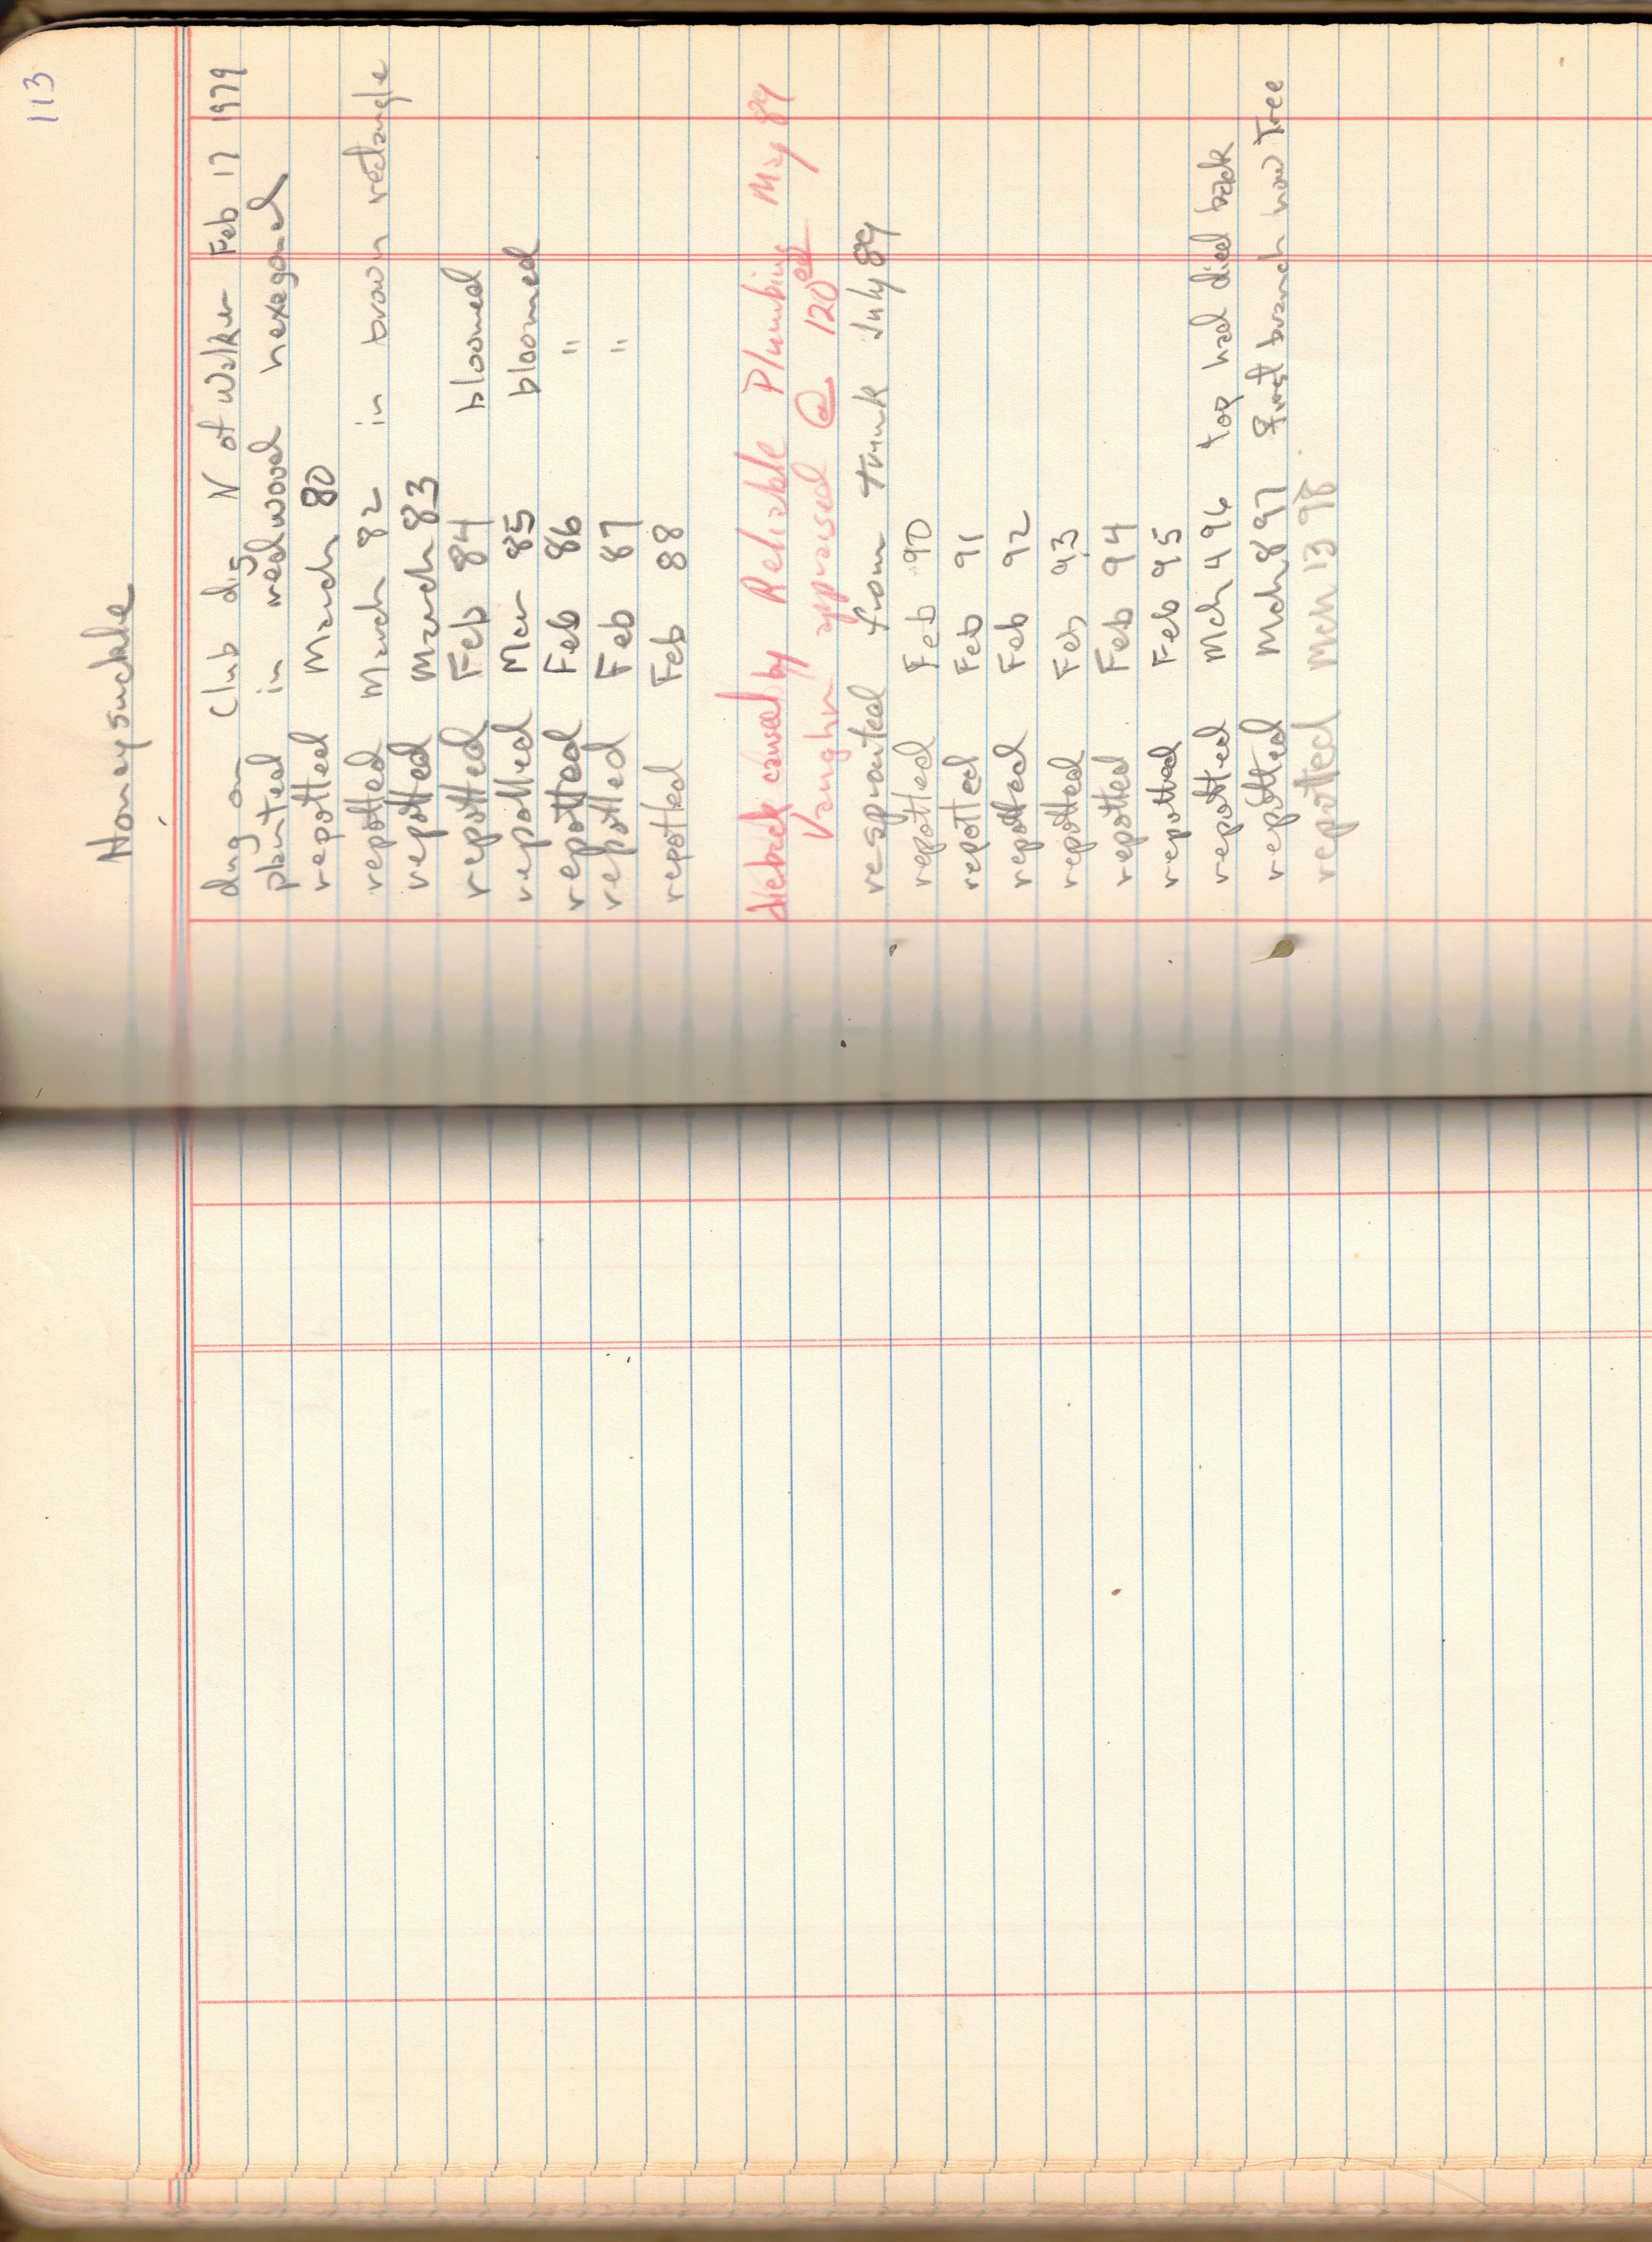 113
Honeysuckle
dug on Club dig N of Walker Feb 17 1979
planted in redwood hexagonal
repotted March 80
repotted March 82 in brown rectangle
repotted March 83
repotted Feb 84 bloomed
repotted Mar 85 bloomed
repotted Feb 86 "
repotted Feb 87 "
repotted Feb 88
dieback caused by Reliable Plumbing May 89
Vaughn appraised @ 120
resprouted from trunk July 89
repotted Feb 90
repotted Feb 91
repotted Feb 92
repotted Feb 93
repotted Feb 94
repotted Feb 95
repotted Mch 4 96 top had died back
repotted Mch 8 97 first branch now tree
repotted Mch 13 98